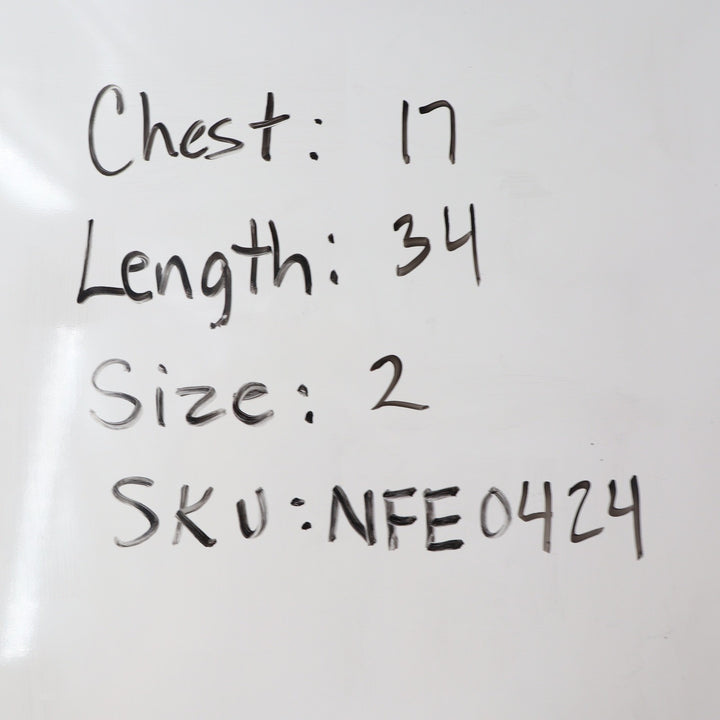 Chest: 17
Length: 34
Size: 2
SKU:NFE0424